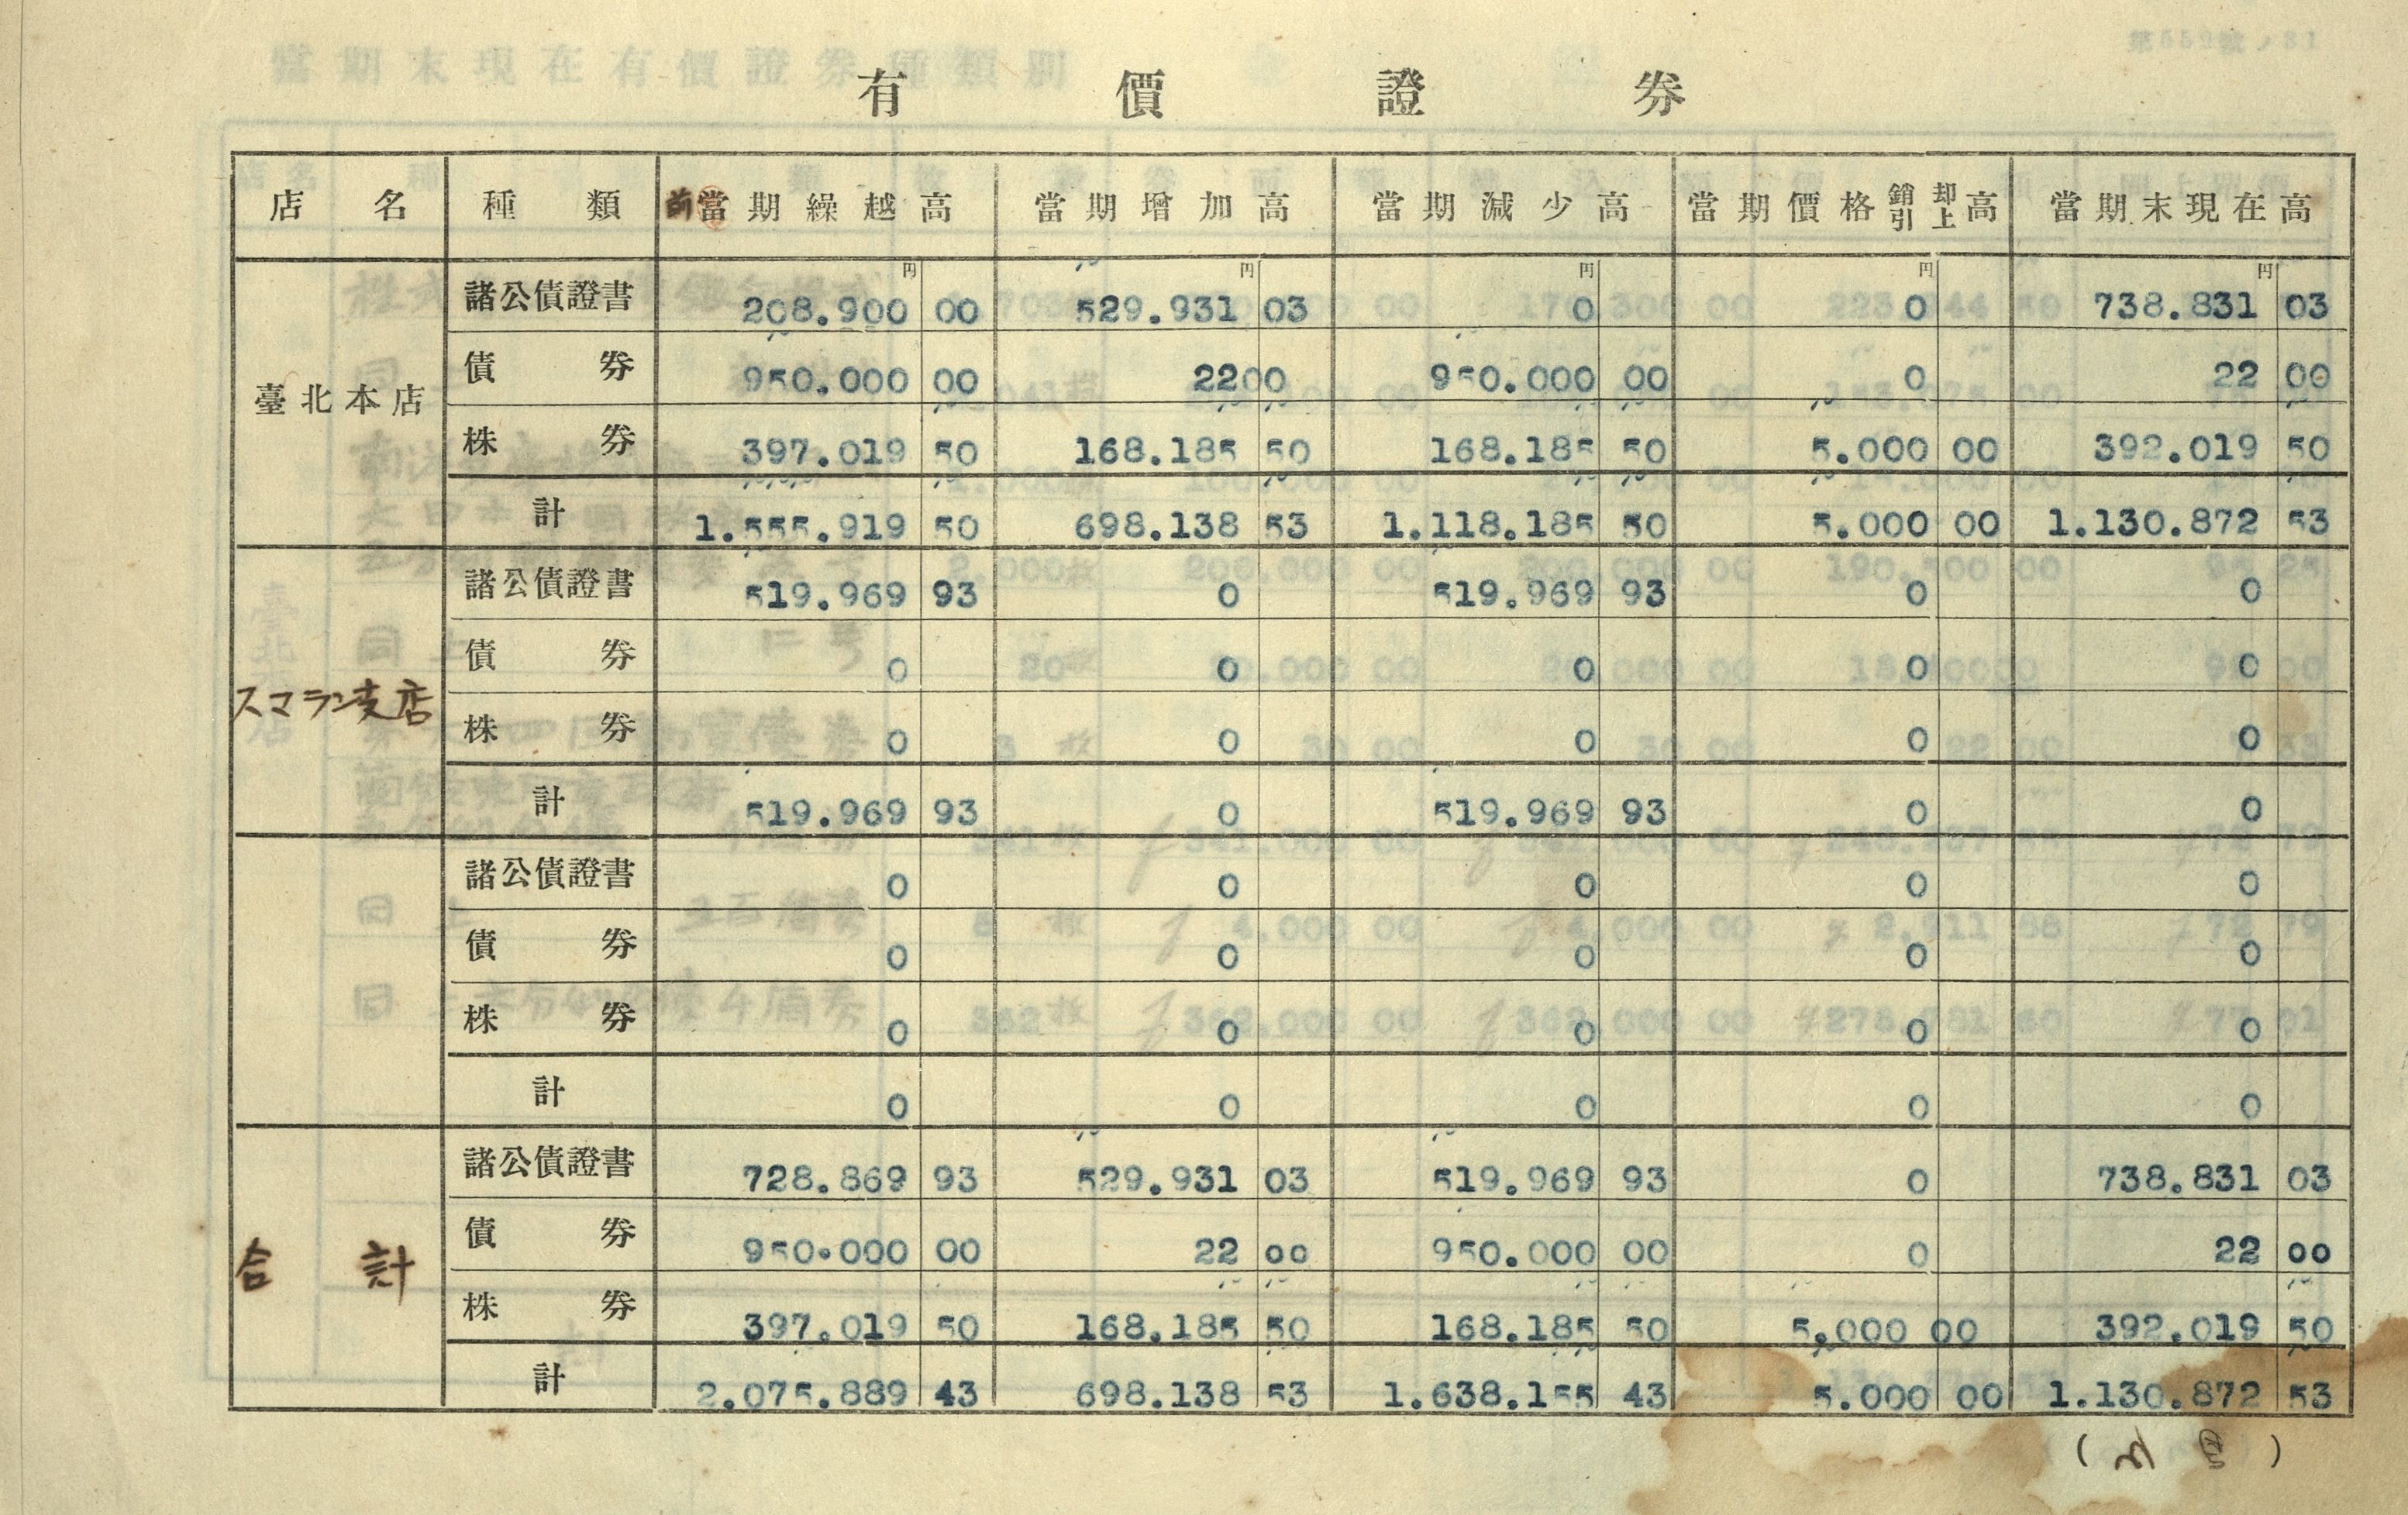 有價證券
店名 種類 前當期繰越高 當期增加高 當期減少高 當期價格銷却引上高 當期末現在高
円 円 円 円 円
臺北本店
諸公債證書 208.900 00 529.931 03 0 0 738.831 03
債券 950.000 00 2200 950.000 00 0 22 00
株券 397.019 50 168.185 50 168.185 50 5.000 00 392.019 50
計 1.555.919 50 698.138 53 1.118.185 50 5.000 00 1.130.872 53
スマラン支店
諸公債證書 519.969 93 0 519.969 93 0 0
債券 0 0 0 0 0
株券 0 0 0 0 0
計 519.969 93 0 519.969 93 0 0
諸公債證書 0 0 0 0 0
債券 0 0 0 0 0
株券 0 0 0 0 0
計 0 0 0 0 0
合計
諸公債證書 728.869 93 529.931 03 519.969 93 0 738.831 03
債券 950.000 00 22 00 950.000 00 0 22 00
株券 397.019 50 168.185 50 168.185 50 5.000 00 392.019 50
計 2.075.889 43 698.138 53 1.638.155 43 5.000 00 1.130.872 53